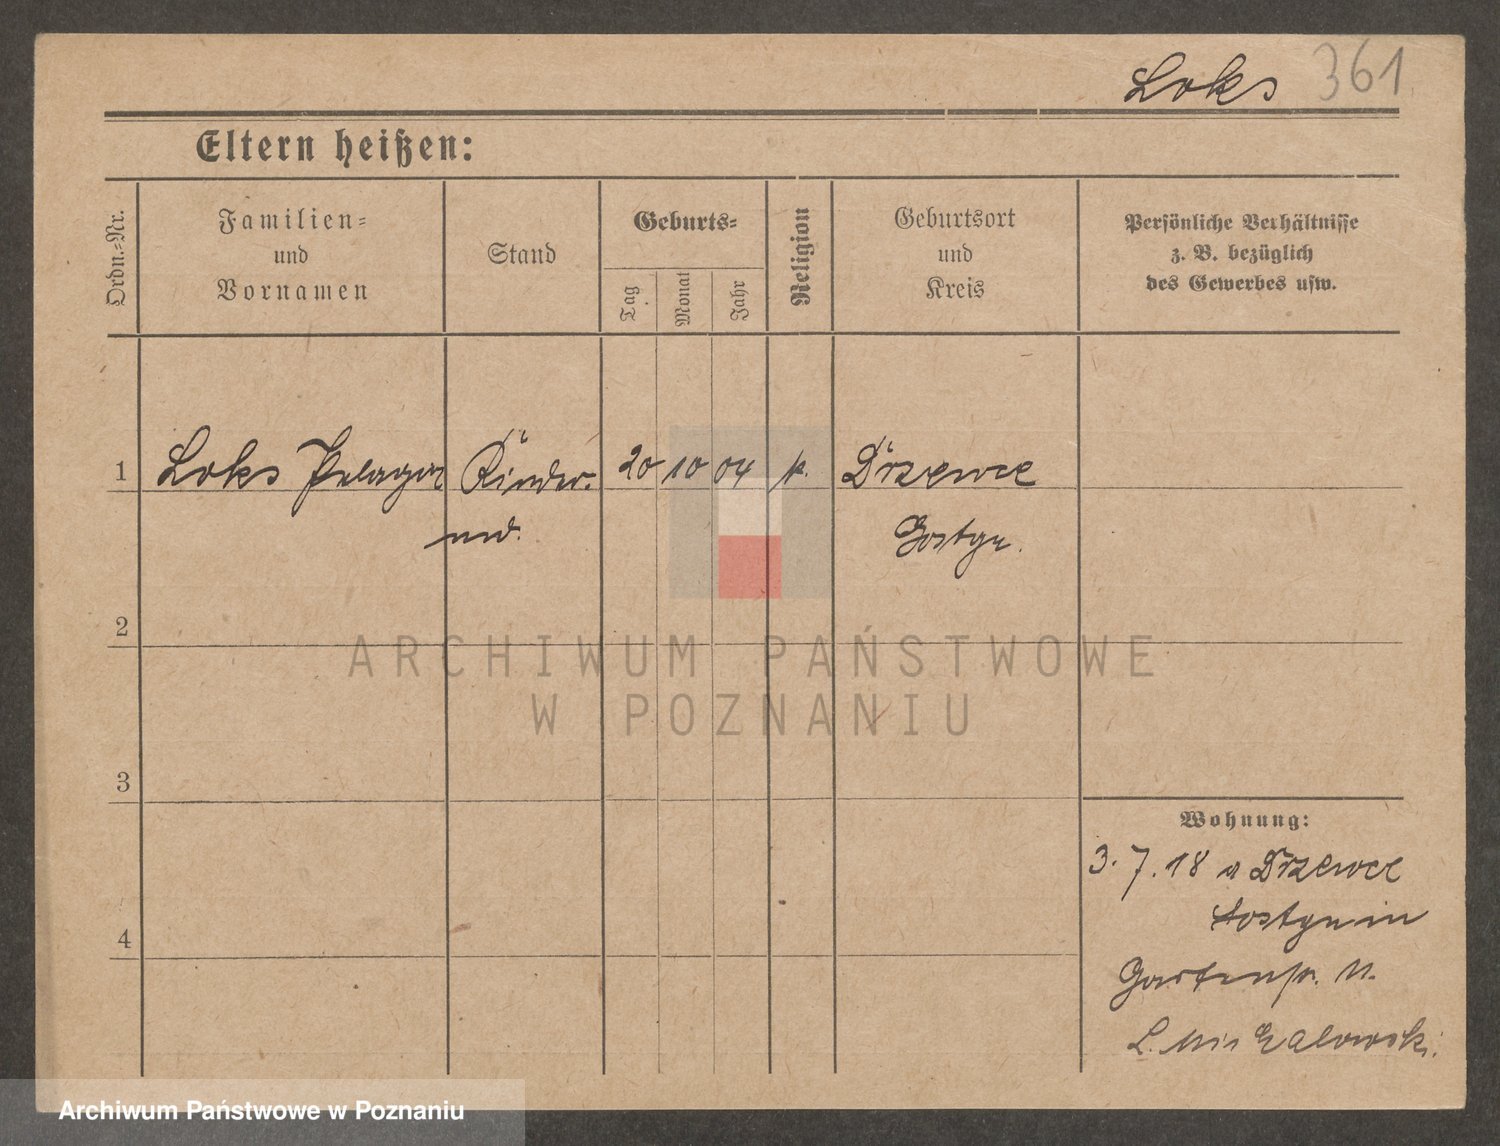 Loks 361
Eltern heißen:
Ordn.-Nr.
Familien-
und
Vornamen
Stand
Geburts-
Tag
Monat
Jahr
Religion
Geburtsort
und
Kreis
Persönliche Verhältnisse
z. B. bezüglich
des Gewerbes usw.
1 Loks Pelagia Kinder- 20 10 04 k. Drzewce
md. Gostyn.
2
3
4
Wohnung:
3. 7. 18 a Drzewce
Gostyn in
Gartenstr. 11.
ARCHIWUM PAŃSTWOWE
W POZNANIU
Archiwum Państwowe w Poznaniu